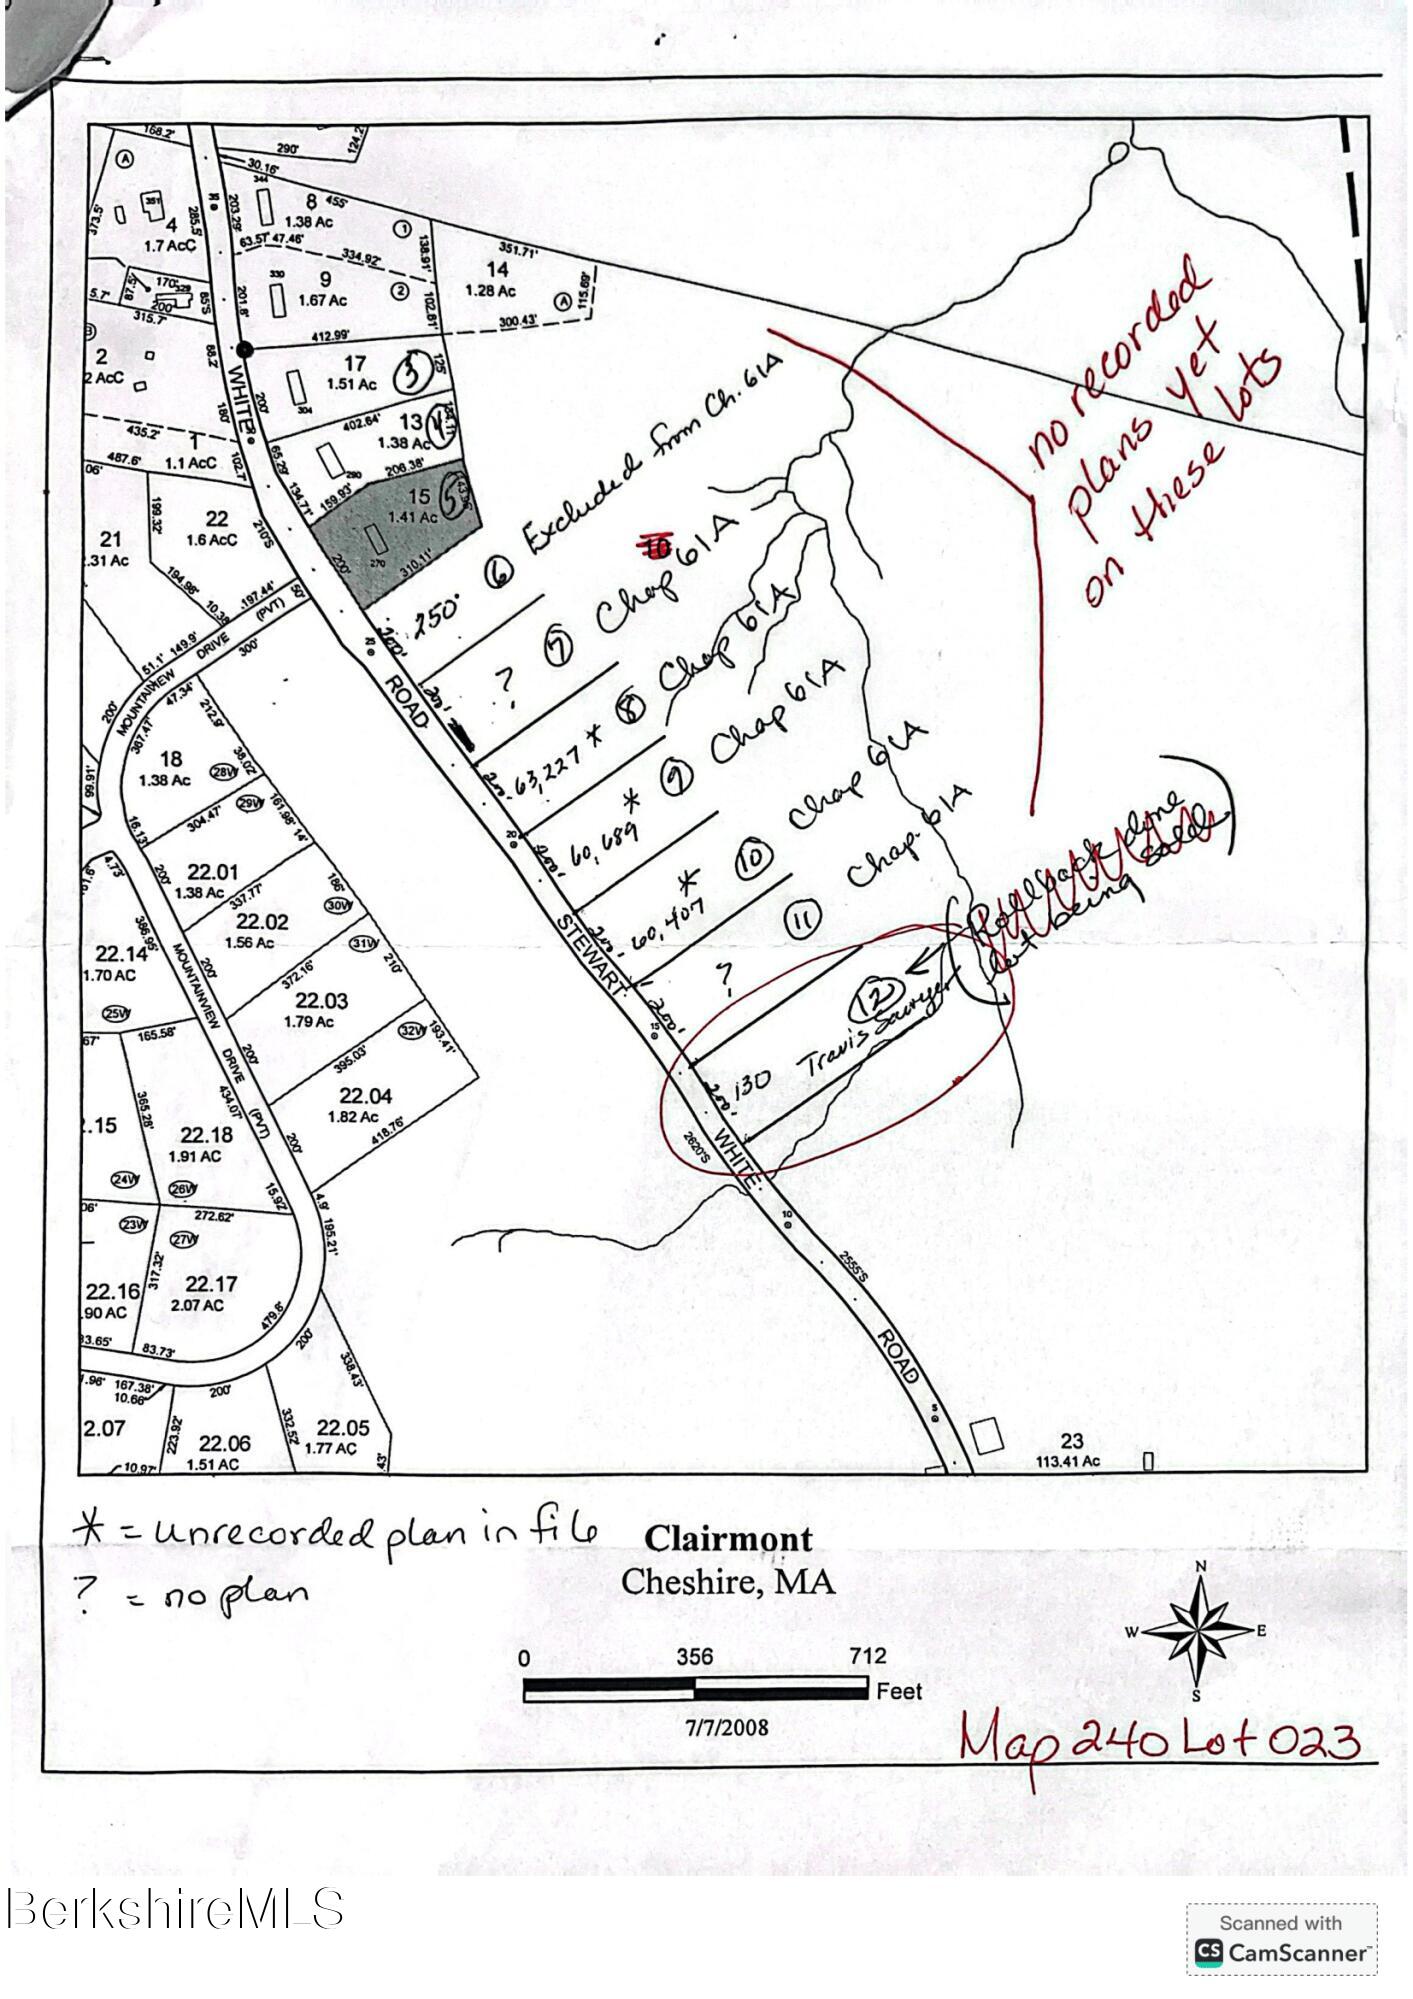 168.2'
290'
124.2
30.16'
344
8
455'
1.38 Ac
1
A
351
373.5'
4
1.7 AcC
285.5'
203.29'
63.57'
47.46'
334.92'
138.91'
351.71'
14
1.28 Ac
115.69'
A
330
9
1.67 Ac
2
102.61'
300.43'
170'
329
87.5'
200'
5.7'
315.7'
85'S
201.8'
412.99'
B
2
2 AcC
68.2'
WHITE
17
1.51 Ac
3
125'
304
200'
180'
435.2'
1
1.1 AcC
487.6'
102.7'
402.64'
13
1.38 Ac
4
280
65.29'
206.38'
159.93'
134.71'
15
1.41 Ac
5
43.96'
270
310.11'
200'
06'
199.32'
22
1.6 AcC
210'S
21
.31 Ac
194.98'
10.38'
197.44'
(PVT)
50'
DRIVE
300'
51.1'
149.9'
MOUNTAINVIEW
200'
47.34'
367.47'
212.9'
38.02'
18
1.38 Ac
28W
29W
99.91'
16.13'
304.47'
161.98'
14'
200'
4.73'
22.01
1.38 Ac
337.77'
22.02
1.56 Ac
186'
30W
31W
386.95'
22.14
1.70 AC
25W
200'
372.16'
210'
MOUNTAINVIEW
DRIVE
(PVT)
22.03
1.79 Ac
32W
193.41'
67'
165.58'
200'
395.03'
22.04
1.82 Ac
418.76'
434.07'
365.28'
.15
22.18
1.91 AC
24W
26W
200'
15.92'
4.9'
195.21'
06'
23W
272.62'
27W
317.32'
22.16
.90 AC
22.17
2.07 AC
479.8'
200'
3.65'
83.73'
338.43'
1.96'
167.38'
10.66'
200'
2.07
223.92'
22.06
1.51 AC
332.52'
22.05
1.77 AC
.43'
10.97'
ROAD
STEWART
WHITE
ROAD
2620'S
2555'S
20
15
10
5
23
113.41 Ac
6 Excluded from Ch. 61A
250'
200'
10
? 7 Chap 61A
200'
63,227 * 8 Chap 61A
200'
60,689 * 9 Chap 61A
200'
60,407 * 10 Chap 61A
200'
? 11 Chap. 61A
200'
130 Travis Sawyer 12
200'
Rollback done
Lot being sold
no recorded
plans yet
on these lots
* = unrecorded plan in file
? = no plan
Clairmont
Cheshire, MA
0 356 712
Feet
7/7/2008
N
W E
S
Map 240 Lot 023
BerkshireMLS
Scanned with
CS CamScanner